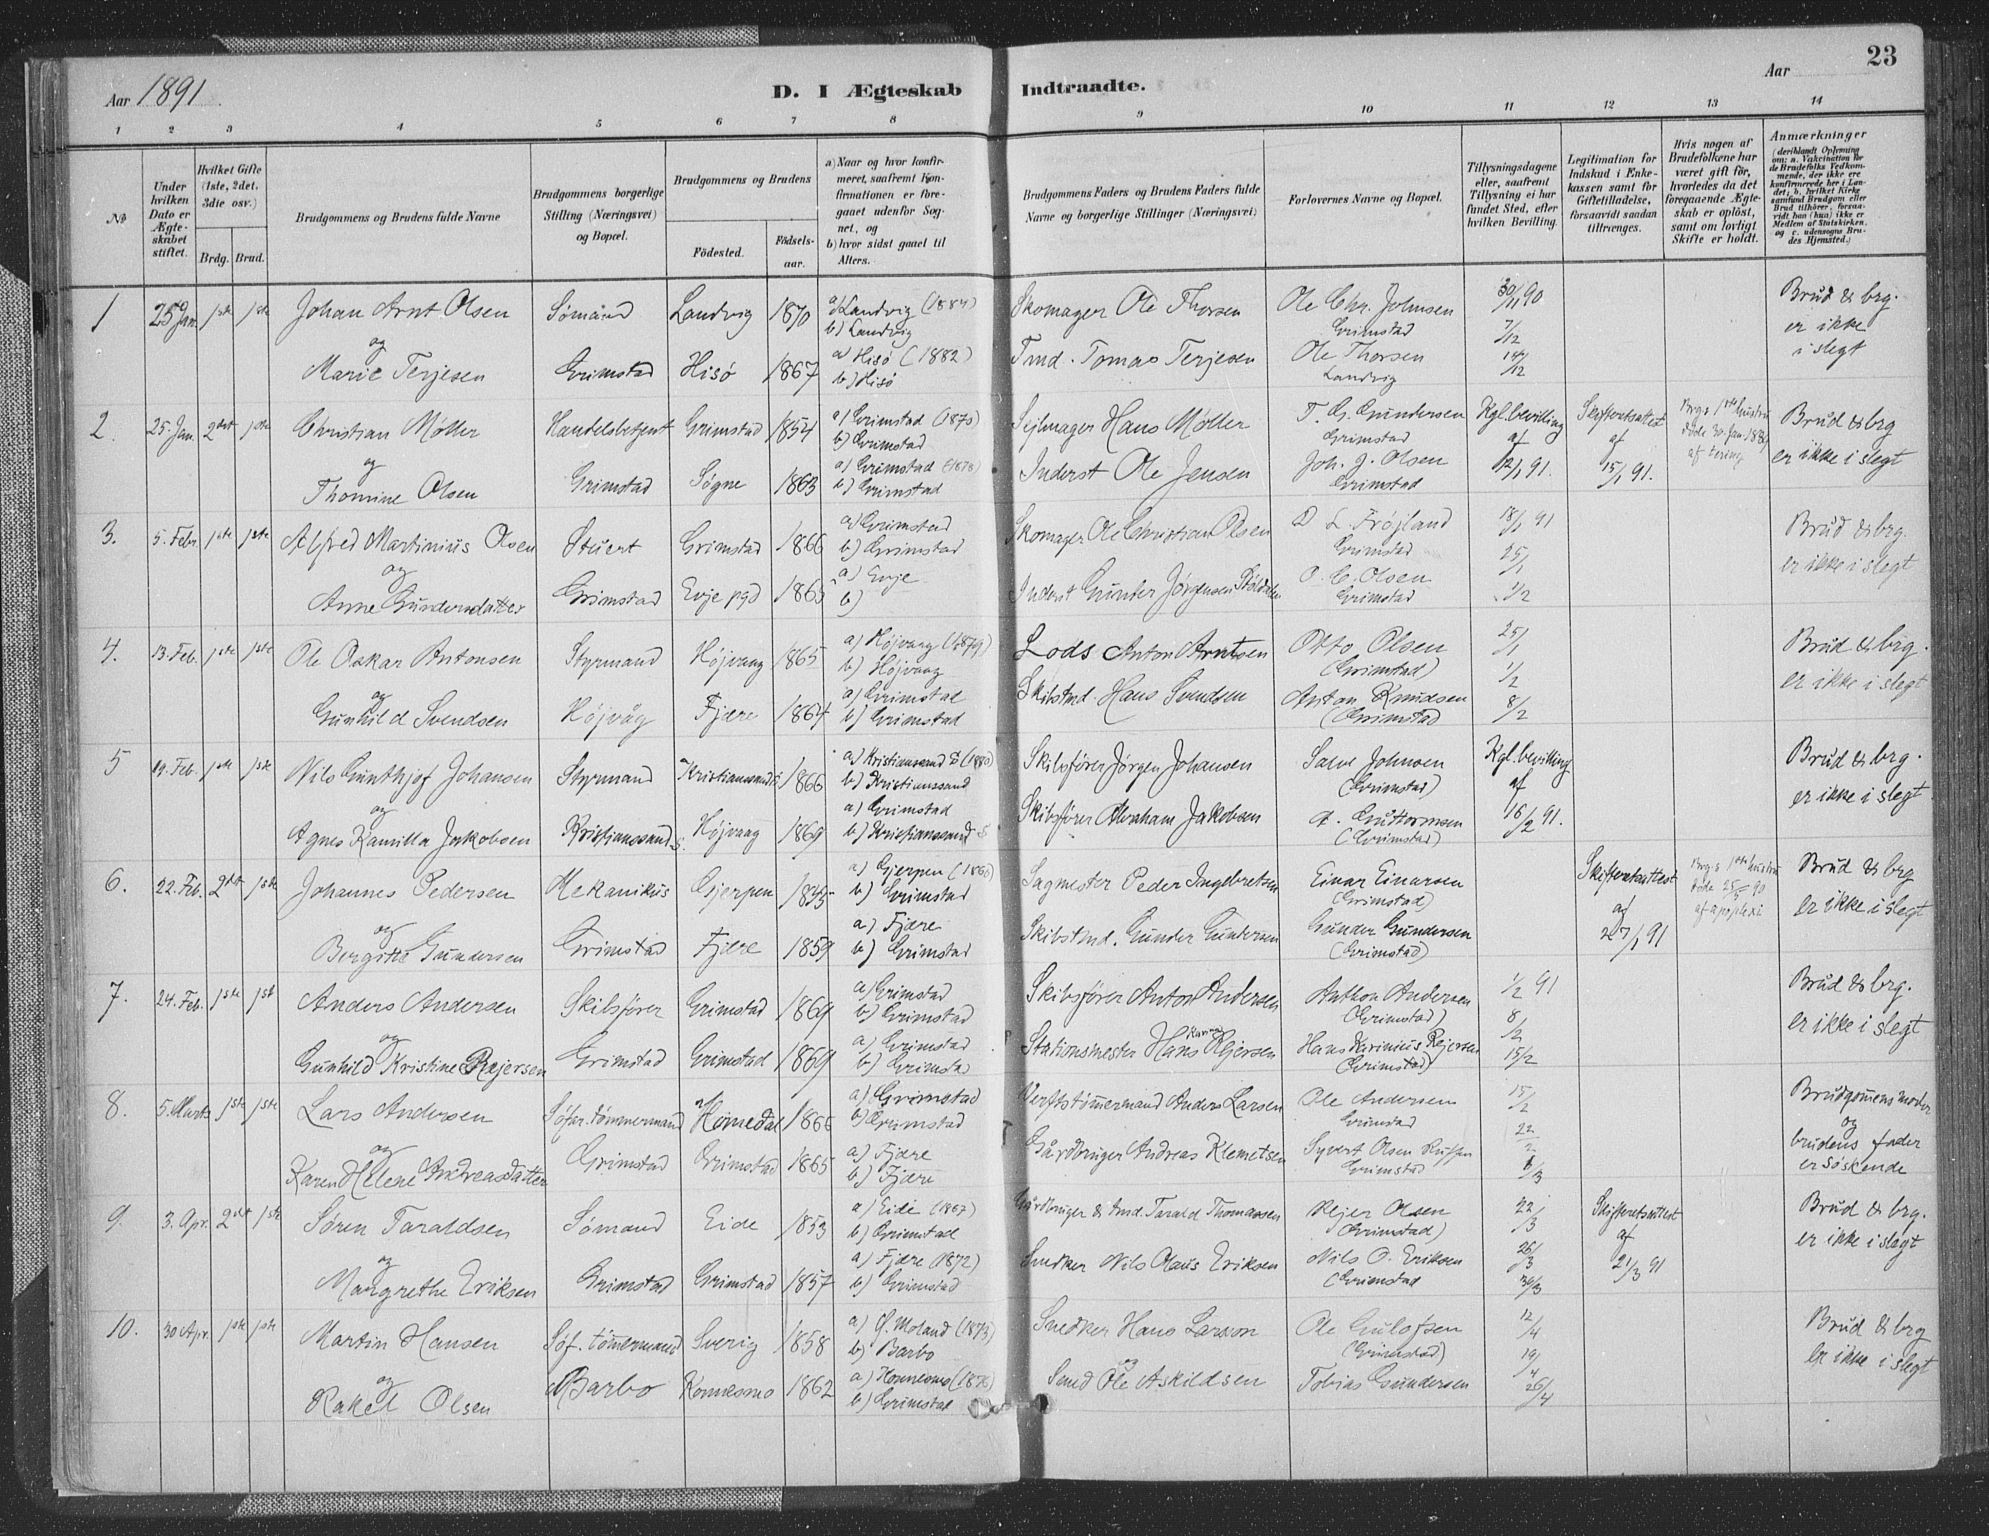 Aar 1891.
D. I Ægteskab Indtraadte.
Aar
23
1 2 3 4 5 6 7 8 9 10 11 12 13 14
№
Under hvilken Dato er Ægteskabet stiftet.
Hvilket Gifte (1ste, 2det, 3die osv.)
Brdg. Brud.
Brudgommens og Brudens fulde Navne
Brudgommens borgerlige Stilling (Næringsvei) og Bopæl.
Brudgommens og Brudens
Födested.
Födselsaar.
a) Naar og hvor konfirmeret, saafremt Konfirmationen er foregaaet udenfor Sognet, og
b) hvor sidst gaaet til Alters.
Brudgommens Faders og Brudens Faders fulde Navne og borgerlige Stillinger (Næringsvei)
Forlovernes Navne og Bopæl.
Tillysningsdagene eller, saafremt Tillysning ei har fundet Sted, efter hvilken Bevilling.
Legitimation for Indskud i Enkekassen samt for Giftetilladelse, forsaavidt saadan tiltrænges.
Hvis nogen af Brudefolkene har været gift för, hvorledes da det foregaaende Ægteskab er oplöst, samt om lovligt Skifte er holdt.
Anmærkninger (deriblandt Oplysning om: a. Vakcination for de Brudefolks Vedkommende, der ikke ere konfirmerede her i Landet; b. hvilket Kirkesamfund Brudgom eller Brud tilhörer, forsaavidt han (hun) ikke er Medlem af Statskirken, og c. udensogns Brudes Hjemsted.)
1 25 Jan. 1ste 1ste Johan Arnt Olsen Sømand Landvig 1870 a) Landvig (1884) b) Landvig Skomager Ole Thorsen Ole Chr. Johnsen Grimstad 30/11 90 7/12 Brud & brg. er ikke i slegt
og Marie Terjesen Grimstad Hisø 1867 a) Hisø (1882) b) Hisø Tmd. Tomas Terjesen Ole Thorsen Landvig 14/12
2. 25. Jan. 2det 1ste Christian Møller Handelsbetjent Grimstad 1854 a) Grimstad (1870) b) Grimstad Sejlmager Hans Møller T. G. Gundersen Grimstad Kgl. bevilling af 12/1 91. Skifteretsattest af 15/1 91. Brgs 1ste hustru døde 30. Jan. af tæring Brud & brg er ikke i slegt
og Thomine Olsen Grimstad Søgne 1863 a) Grimstad (1878) b) Grimstad Inderst Ole Jensen Joh. J. Olsen Grimstad
3. 5. Febr. 1ste 1ste Alfred Martinius Olsen Stuert Grimstad 1866 a) Grimstad b) Grimstad Skomager Ole Christian Olsen D. L. Frøjland Grimstad 18/1 91 25/1 Brud & brg. er ikke i slegt
og Anne Gundersdatter Grimstad Evje pgd 1865 a) Evje b) Inderst Gunter Jørgensen O. C. Olsen Grimstad 1/2
4. 13. Feb. 1ste 1ste Ole Oskar Antonsen Styrmand Højvaag 1865 a) Højvaag (1879) b) Højvaag Lods Anton Arntsen Otto Olsen (Grimstad) 25/1 1/2 Brud & brg. er ikke i slegt
og Gunhild Svendsen Højvåg Fjære 1864 a) Grimstad b) Grimstad Skibstmd. Hans Svendsen Anton Knudsen (Grimstad 8/2
5 19. Feb. 1ste 1ste Nils Gunthjof Johansen Styrmand Kristianssand S 1866 a) Kristianssand S (1880) b) Kristianssand Skibsfører Jørgen Johansen Salve Johnsen (Grimstad) Kgl. bevilling af 16/2 91. Brud & brg. er ikke i slegt
og Agnes Kamilla Jakobsen Kristianssand S. Højvaag 1869 a) Grimstad b) Kristianssand S Skibsfører Abraham Jakobsen A. Guttormsen (Grimstad)
6. 22. Feb. 2det 1ste Johannes Pedersen Mekanikus Gjerpen 1835 a) Gjerpen (1860) b) Grimstad Sagmester Peder Ingebretsen Einar Einarsen (Grimstad) Skifteretsattest af 27/1 91 Brgs 1ste hustru døde 25/5 90 af apoplexi Brud & brg er ikke i slegt
og Bergitte Gundersen Grimstad Fjære 1859 a) Fjære b) Grimstad Skibstmd. Gunder Gundersen Gunder Gundersen (Grimstad)
7. 24. Feb. 1ste 1ste Anders Andersen Skibsfører Grimstad 1869 a) Grimstad b) Grimstad Skibsfører Anton Andersen Anthon Andersen (Grimstad) 1/2 91 8/2 Brud & brg. er ikke i slegt
og Gunhild Kristine Rejersen Grimstad Grimstad 1869 a) Grimstad b) Grimstad Stationsmester Hans Karinius Rejersen Hans Karinius Rejersen (Grimstad) 15/2
8. 5. Marts 1ste 1ste Lars Andersen Søfar. tømmermand Homedal 1866 a) Grimstad b) Grimstad Verftstømmermand Anders Larsen Ole Andersen Grimstad 15/2 22/2 Brudgomens moder og brudens fader er søskende
og Karen Helene Andreasdatter Grimstad Grimstad 1865 a) Fjære b) Fjære Gårdbruger Andreas Klemetsen Syvert Olsen Grimstad 1/3
9. 3. Apr. 2det 1ste Søren Taraldsen Sømand Eide 1853 a) Eide (1867) b) Grimstad Gårdbruger & Smd Tarald Thomassen Rejer Olsen (Grimstad) 22/3 Skifteretsattest af 21/3 91 Brud & brg. er ikke i slegt
og Margrethe Eriksen Grimstad Grimstad 1857 a) Fjære (1872) b) Grimstad Snedker Nils Olaus Eriksen Nils O. Eriksen (Grimstad 26/3 30/3
10. 30 Apr. 1ste 1ste Martin Hansen Søf. tømmermand Sverig 1858 a) Ø. Moland (1873) b) Barbo Snedker Hans Larsson Ole Gulofsen (Grimstad) 12/4 19/4 Brud & brg er ikke i slegt
og Rakel Olsen Barbo Konnesmo 1862 a) Konnesmo (1876) b) Grimstad Smed Ole Askildsen Tobias Gundersen 26/4